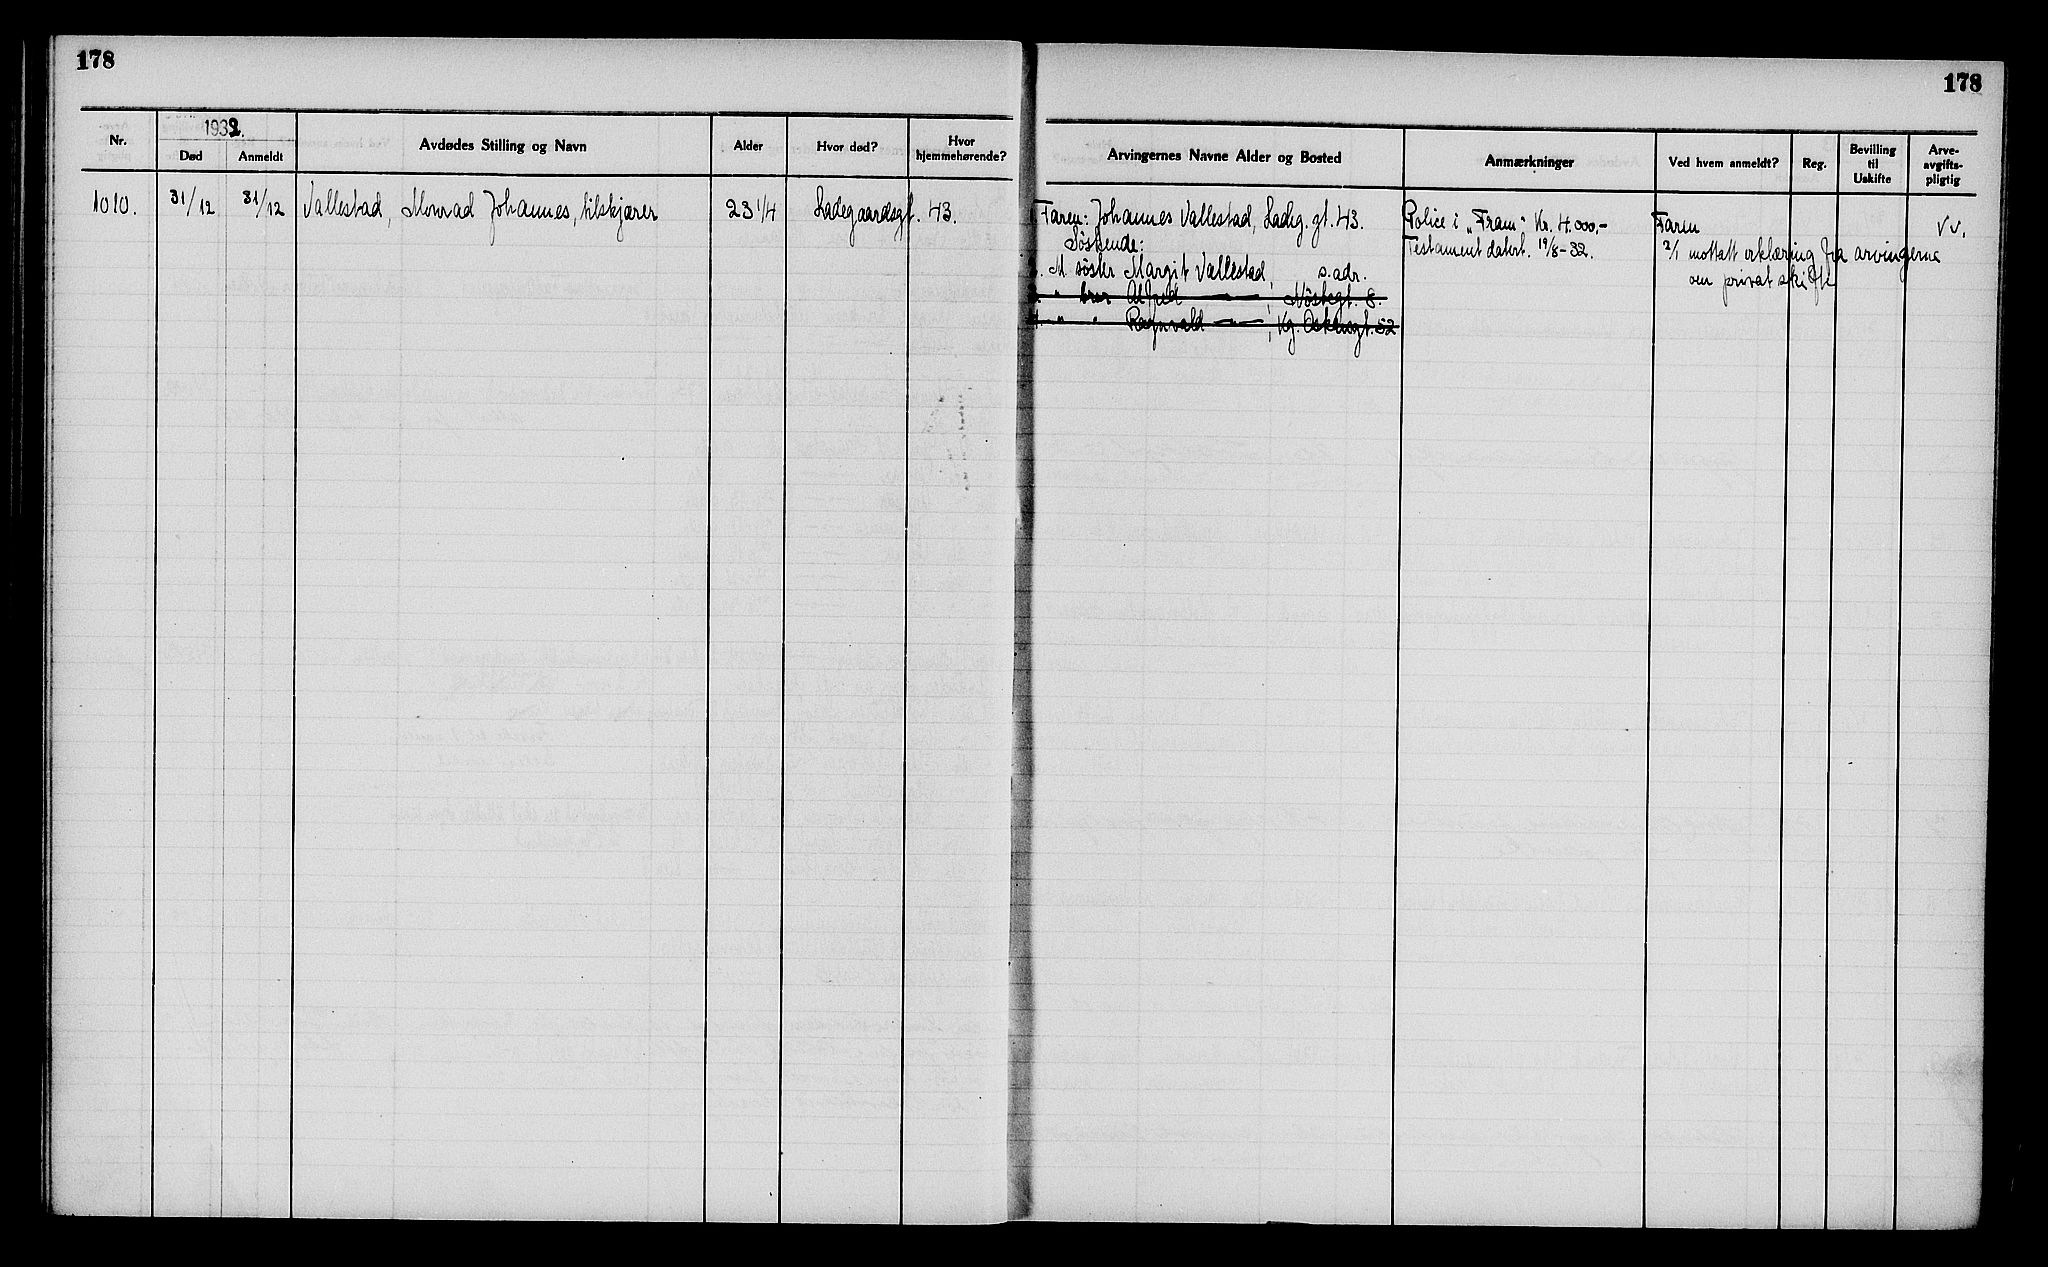 178
178
1932.
Nr.
Død
Anmeldt
Avdødes Stilling og Navn
Alder
Hvor død?
Hvor hjemmehørende?
Arvingernes Navne Alder og Bosted
Anmærkninger
Ved hvem anmeldt?
Reg.
Bevilling til Uskifte
Arve-avgifts-pligtig
1010. 31/12 31/12 Vallestad, Monrad Johannes, tilskjærer 23 1/4 Ladegaardsgt. 43.
Faren: Johannes Vallestad, Ladeg. gt. 43.
Søskende:
M. søster Margit Vallestad, s. adr.
" bror Alfred —"—, Nøstegt. 8.
" " Ragnvald —"—, Kg. Oskarsgt. 52
Police i "Fram" Kr. 4.000,-
Testament datert. 19/8-32.
Faren
2/1 mottatt erklæring fra arvingerne
om privat skifte
VV.